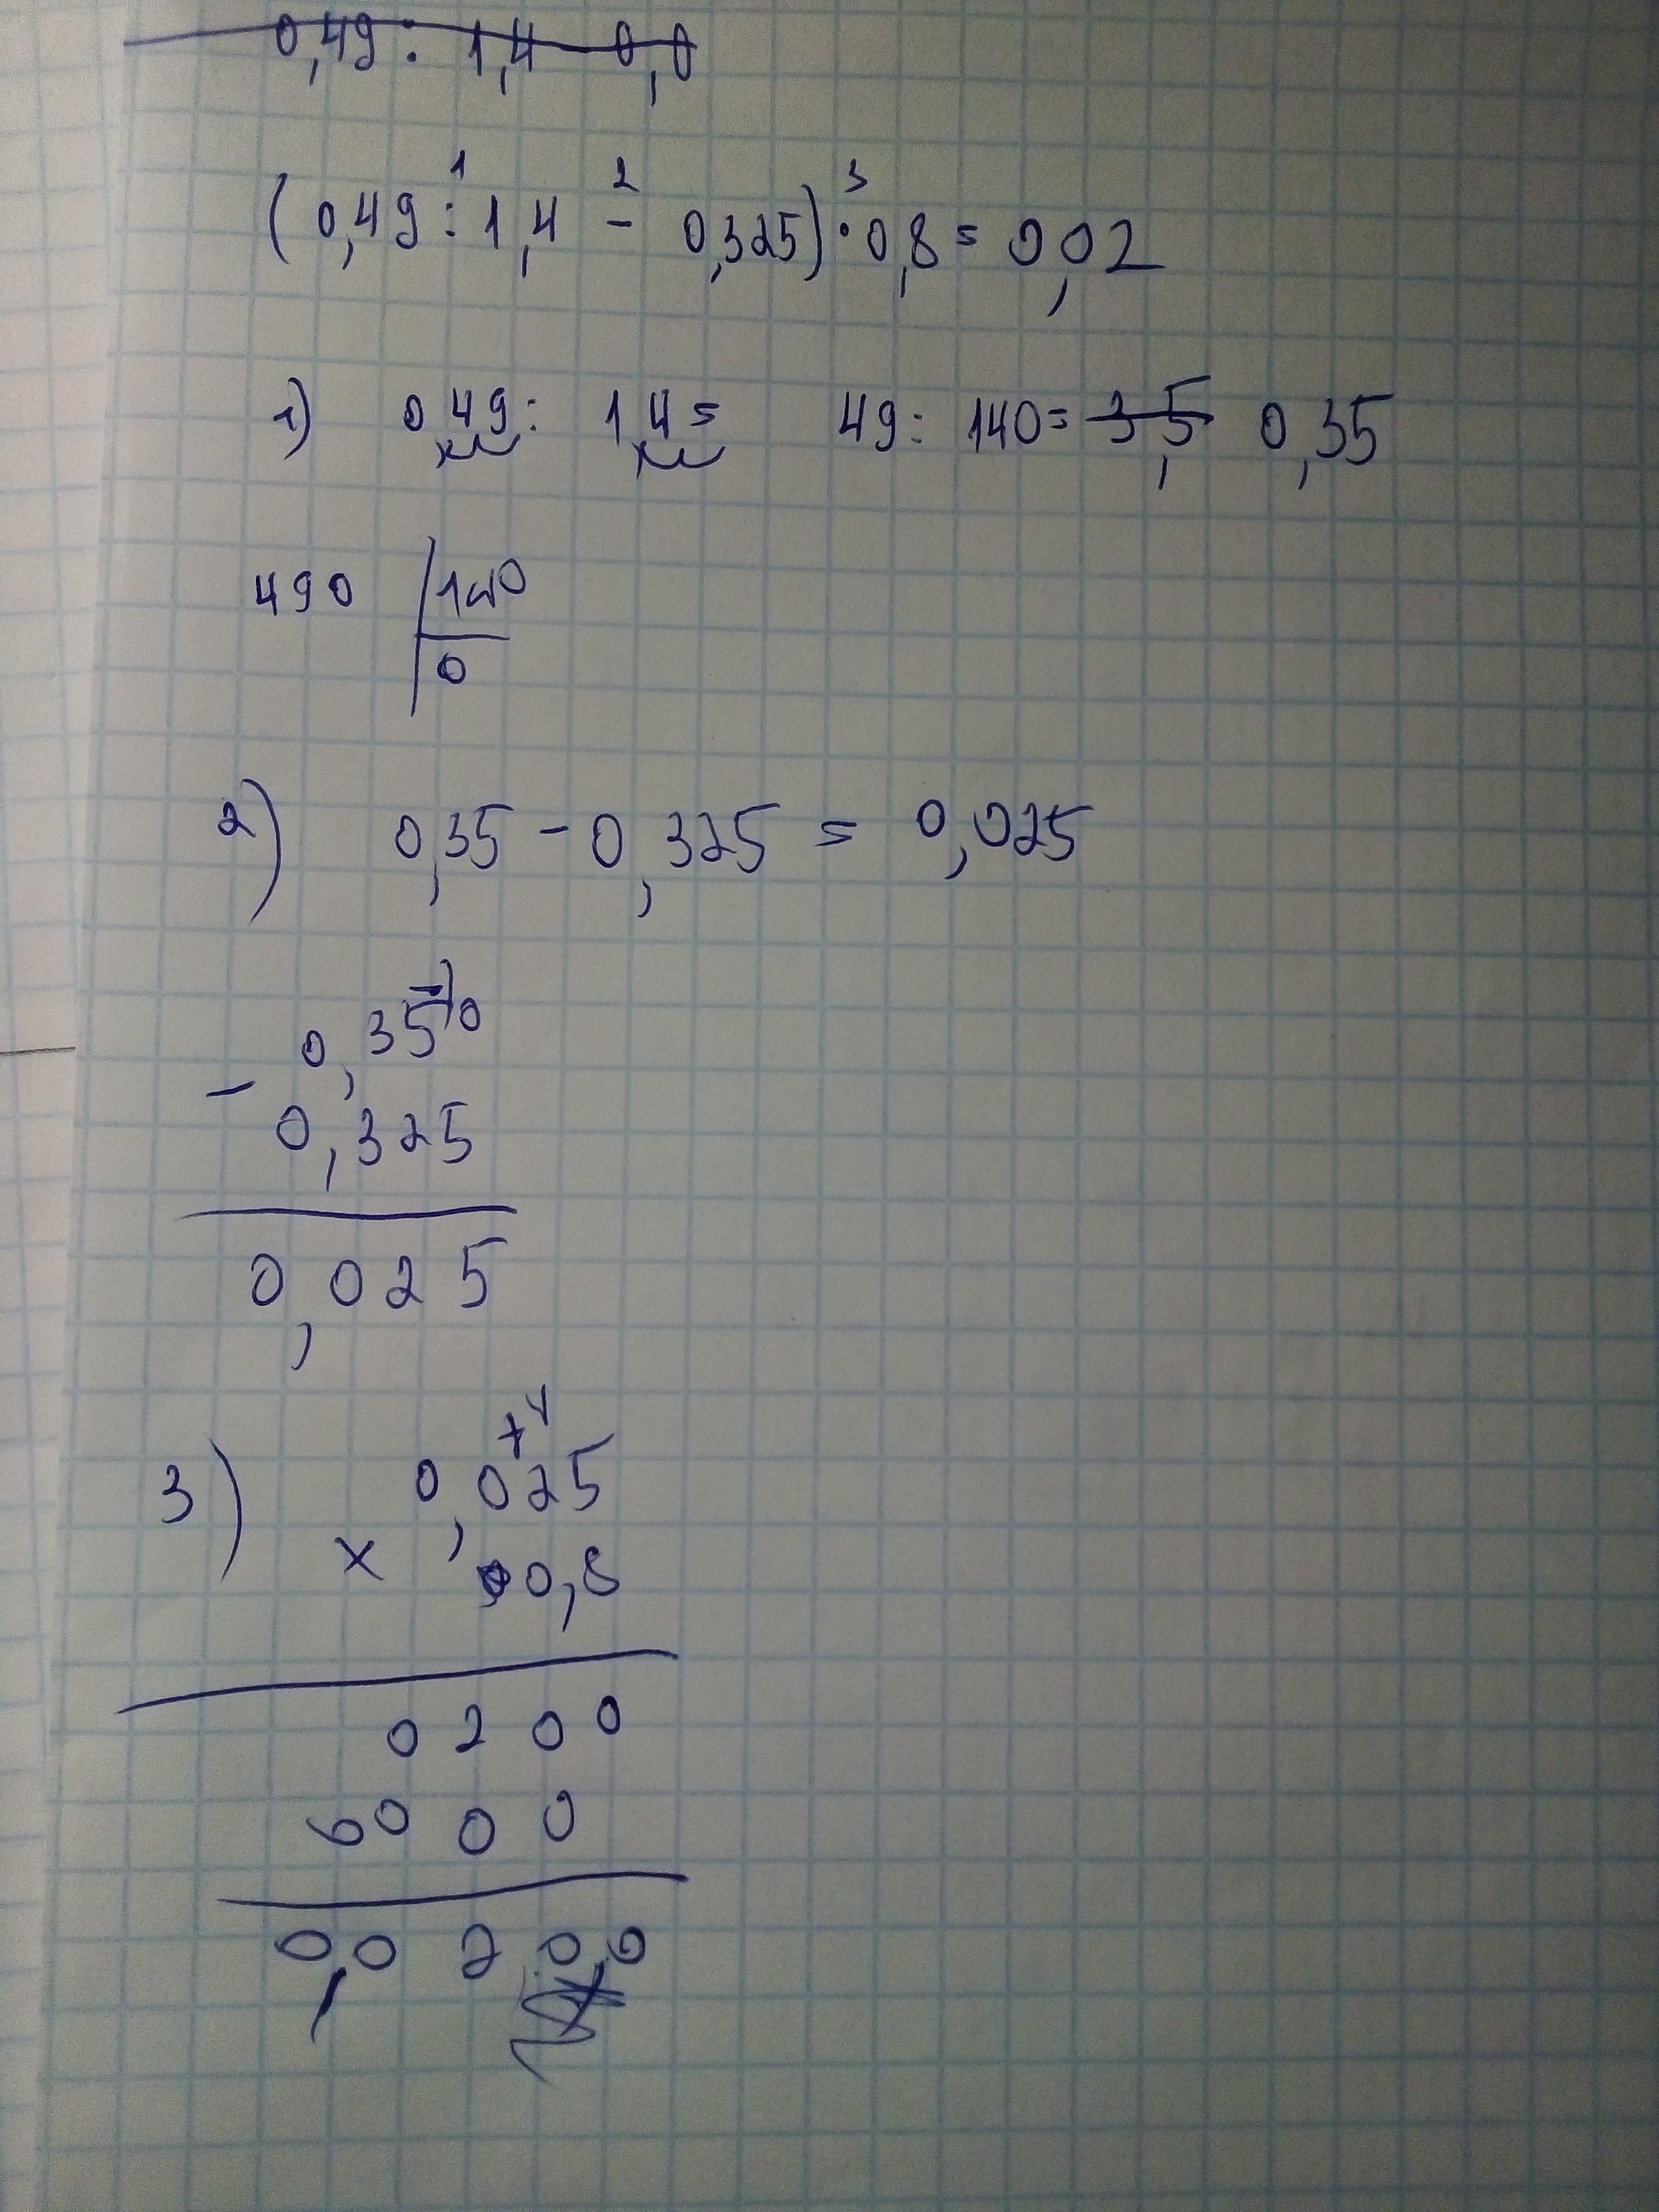 0,49 : 1,4 0,0
1 2 3
(0,49 : 1,4 - 0,325) · 0,8 = 0,02
1) 0,49 : 1,4 = 49 : 140 = 3,5 0,35
490 140
0
2) 0,35 - 0,325 = 0,025
0,350
- 0,325
0,025
+4
3) 0,025
x 0,8
0200
0000
0,0200